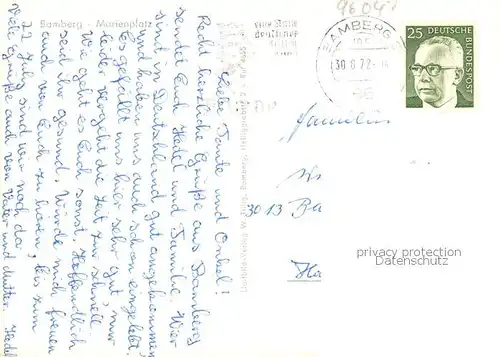 Bamberg - Marienplatz
Liebe Tante und Onkel!
Recht herzliche Grüße aus Bamberg
sendet Euch Hedel und Familie. Wir
sind in Deutschland gut angekommen
und haben uns auch schon eingelebt.
Es gefällt uns hier sehr gut, nur
leider vergeht die Zeit zur schnell.
Wie geht es Euch sonst. Hoffentlich
seid ihr gesund. Würde mich freuen
auch von Euch zu hören, bis zum
22. Juli sind wir noch da.
Viele Grüße auch von Vater und Mutter. Hedel
96047
BAMBERG
30.6.72
25 DEUTSCHE
BUNDESPOST
Familie
3013 Ba
privacy protection
Datenschutz